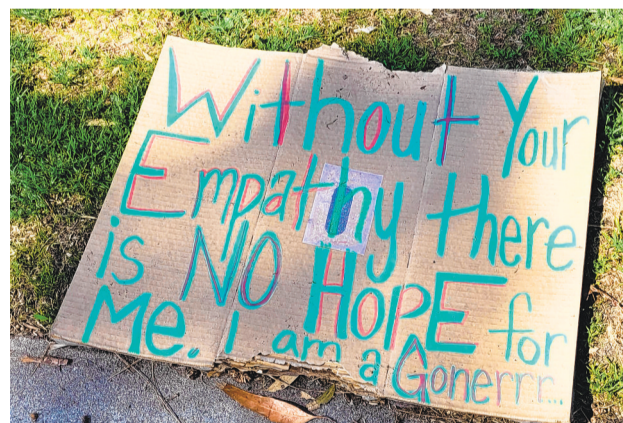 Without Your
Empathy there
is NO HOPE for
Me. I am a Gonerrr...